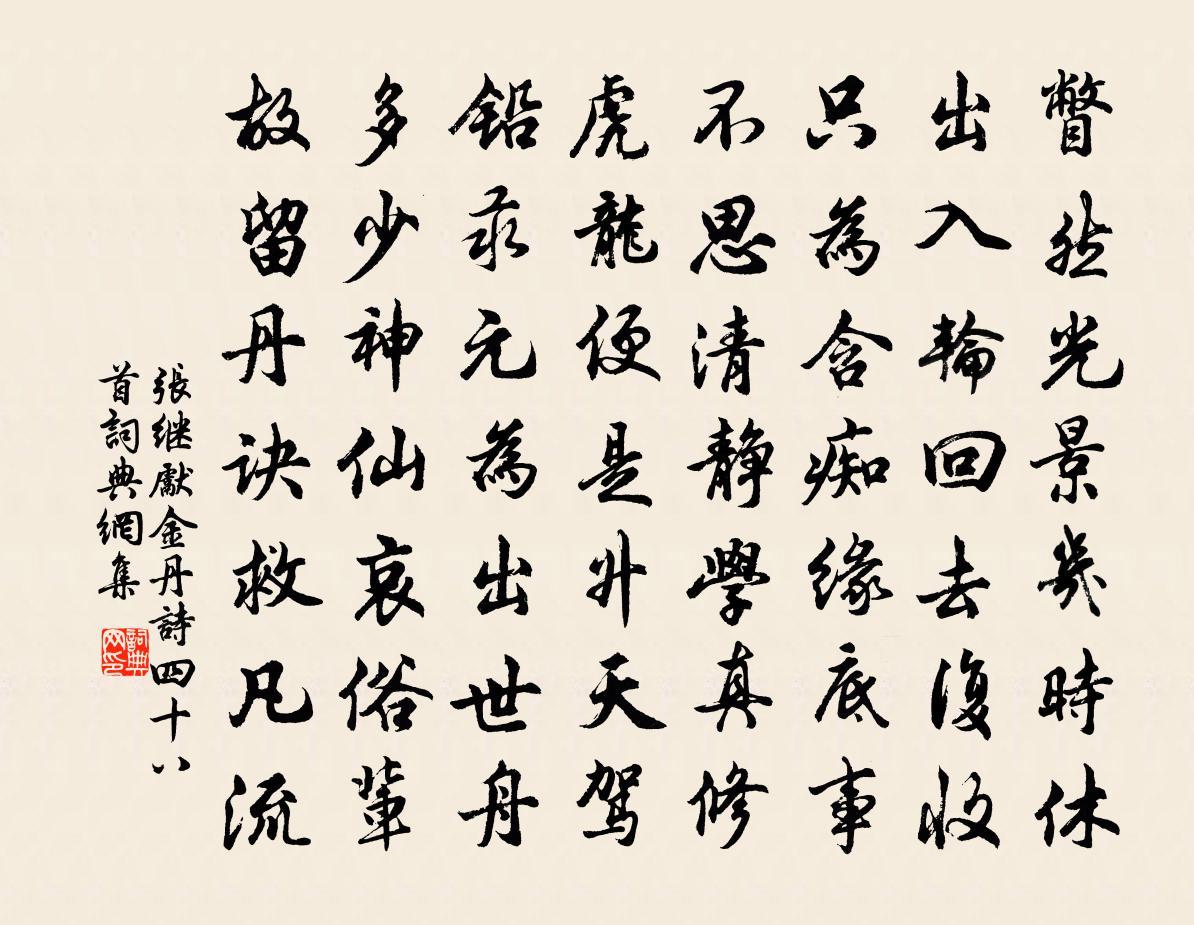 瞥然光景幾時休
出入輪回去復收
只為含痴緣底事
不思清靜學真修
虎龍便是升天駕
鉛汞元為出世舟
多少神仙哀俗輩
故留丹訣救凡流
張继獻金丹詩四十八
首詞典網集
詞典
网印